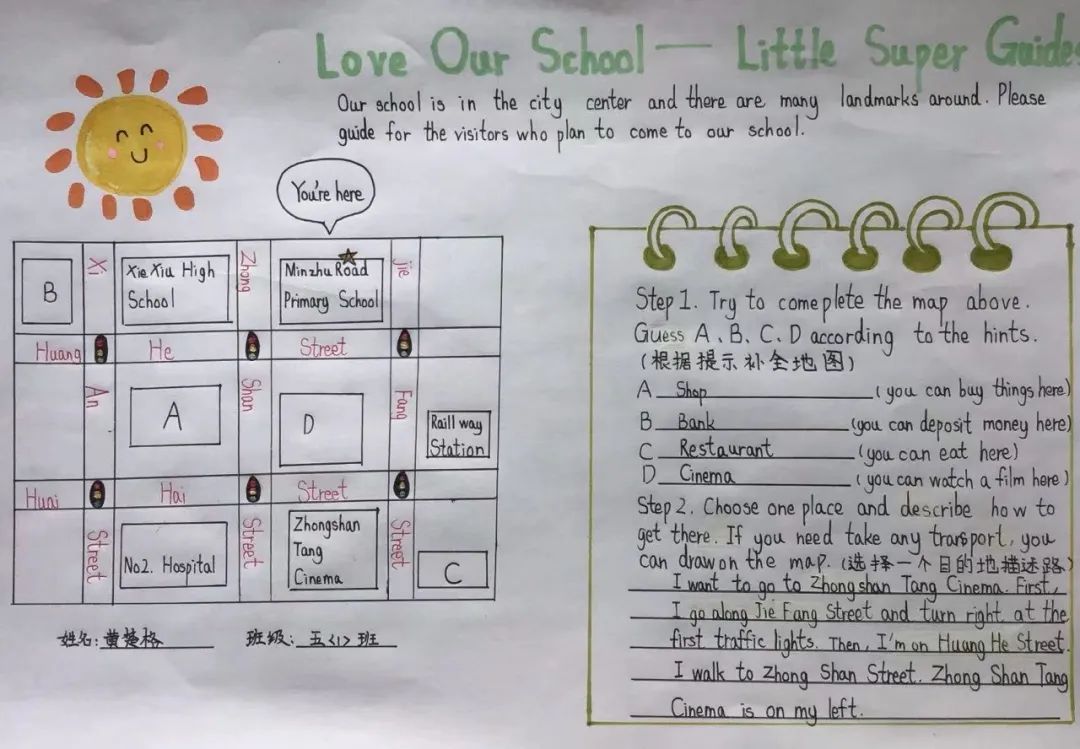 Love Our School — Little Super Guides
Our school is in the city center and there are many landmarks around. Please
guide for the visitors who plan to come to our school.
You're here
B
Xi
Xie Xiu High
School
Zhong
Minzhu Road
Primary School
jie
Huang
He
Street
An
A
Shan
D
Fang
Raill way
Station
Huai
Hai
Street
Street
No2. Hospital
Street
Zhongshan
Tang
Cinema
Street
C
姓名: 黄楚格
班级: 五<1>班
Step 1. Try to comeplete the map above.
Guess A、B、C、D according to the hints.
(根据提示补全地图)
A Shop (you can buy things here)
B Bank (you can deposit money here)
C Restaurant (you can eat here)
D Cinema (you can watch a film here)
Step 2. Choose one place and describe how to
get there. If you need take any transport, you
can draw on the map. (选择一个目的地描述路)
I want to go to Zhong shan Tang Cinema. First,
I go along Jie Fang Street and turn right at the
first traffic lights. Then, I'm on Huang He Street.
I walk to Zhong Shan Street. Zhong Shan Tang
Cinema is on my left.